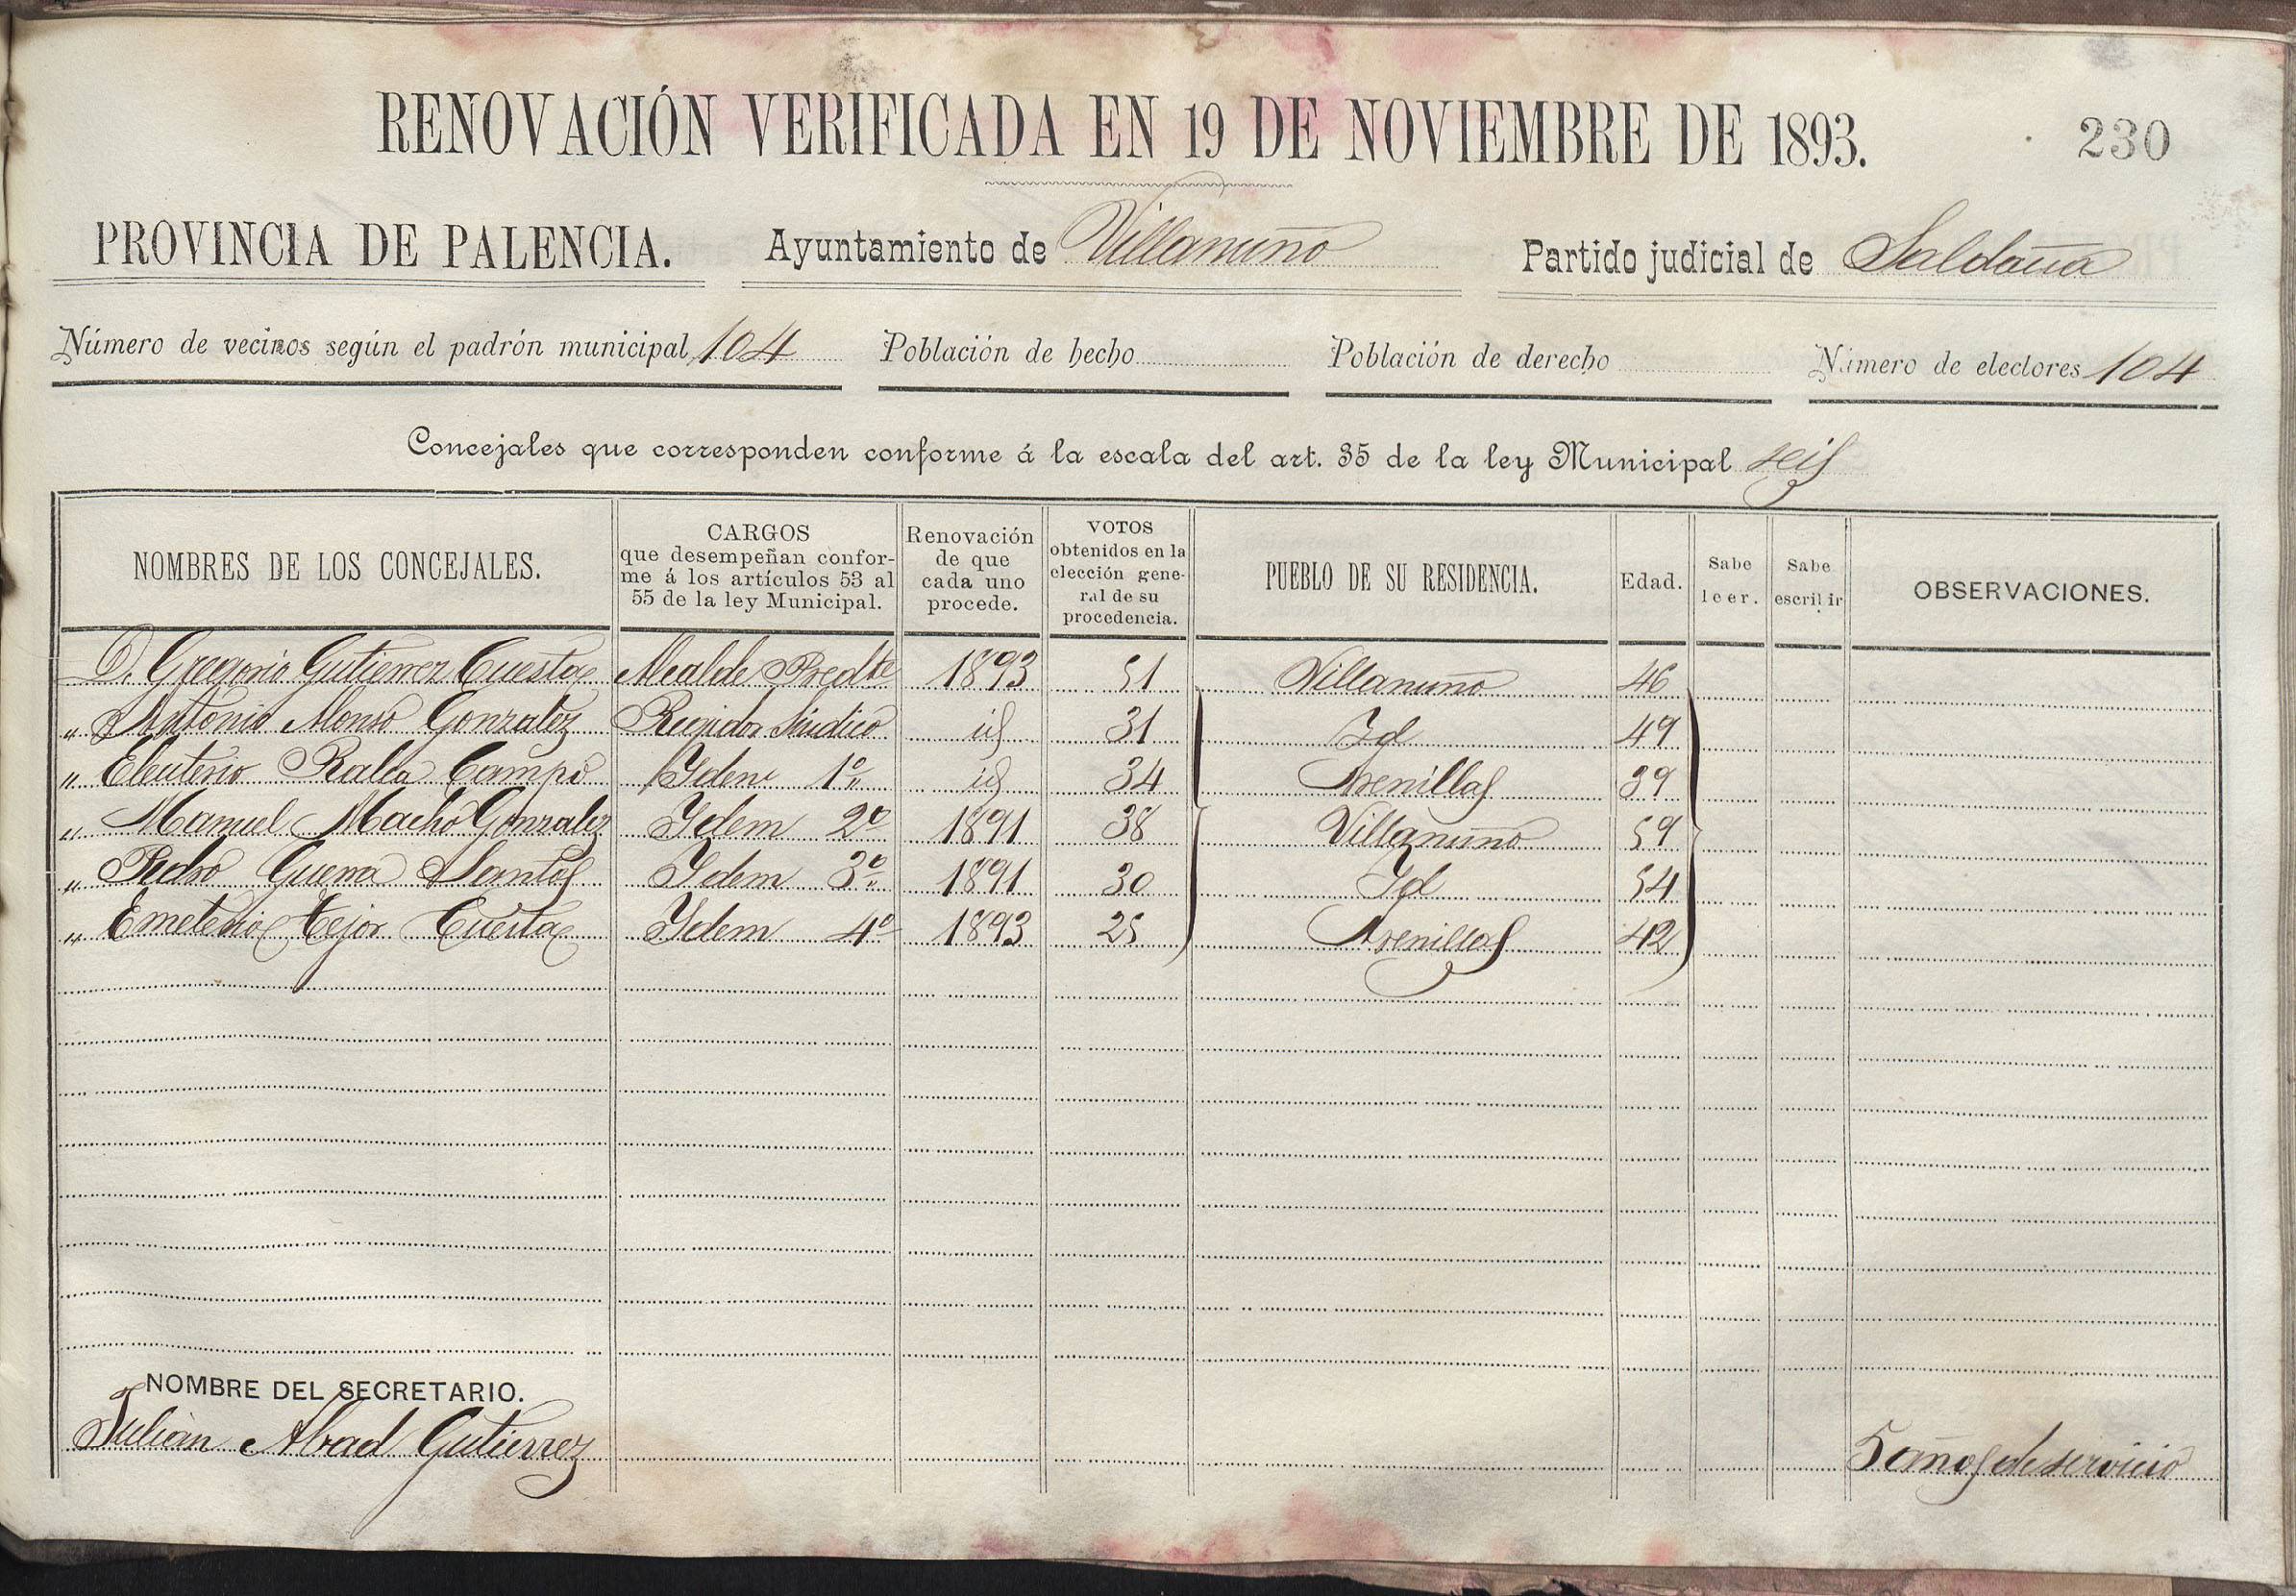 RENOVACIÓN VERIFICADA EN 19 DE NOVIEMBRE DE 1893. 230
PROVINCIA DE PALENCIA. Ayuntamiento de Villanuño Partido judicial de Saldaña
Número de vecinos según el padrón municipal 104 Población de hecho Población de derecho Número de electores 104
Concejales que corresponden conforme á la escala del art. 35 de la ley Municipal seis
NOMBRES DE LOS CONCEJALES.
CARGOS
que desempeñan confor-
me á los artículos 53 al
55 de la ley Municipal.
Renovación
de que
cada uno
procede.
VOTOS
obtenidos en la
elección gene-
ral de su
procedencia.
PUEBLO DE SU RESIDENCIA.
Edad.
Sabe
leer.
Sabe
escribir
OBSERVACIONES.
D. Gregorio Gutierrez Cuesta Alcalde Presdte 1893 51 Villanuño 46
" Antonio Alonso Gonzalez Regidor Síndico id 31 Id 49
" Eleuterio Ralea Campo Idem 1º 34 Arenillas 39
" Manuel Macho Gonzalez Idem 2º 1891 38 Villanuño 59
" Pedro Guerra Santos Idem 3º 1891 30 Id 54
" Emeterio Tejor Cuesta Idem 4º 1893 25 Arenillas 42
NOMBRE DEL SECRETARIO.
Julian Abad Gutierrez 5 años de servicio